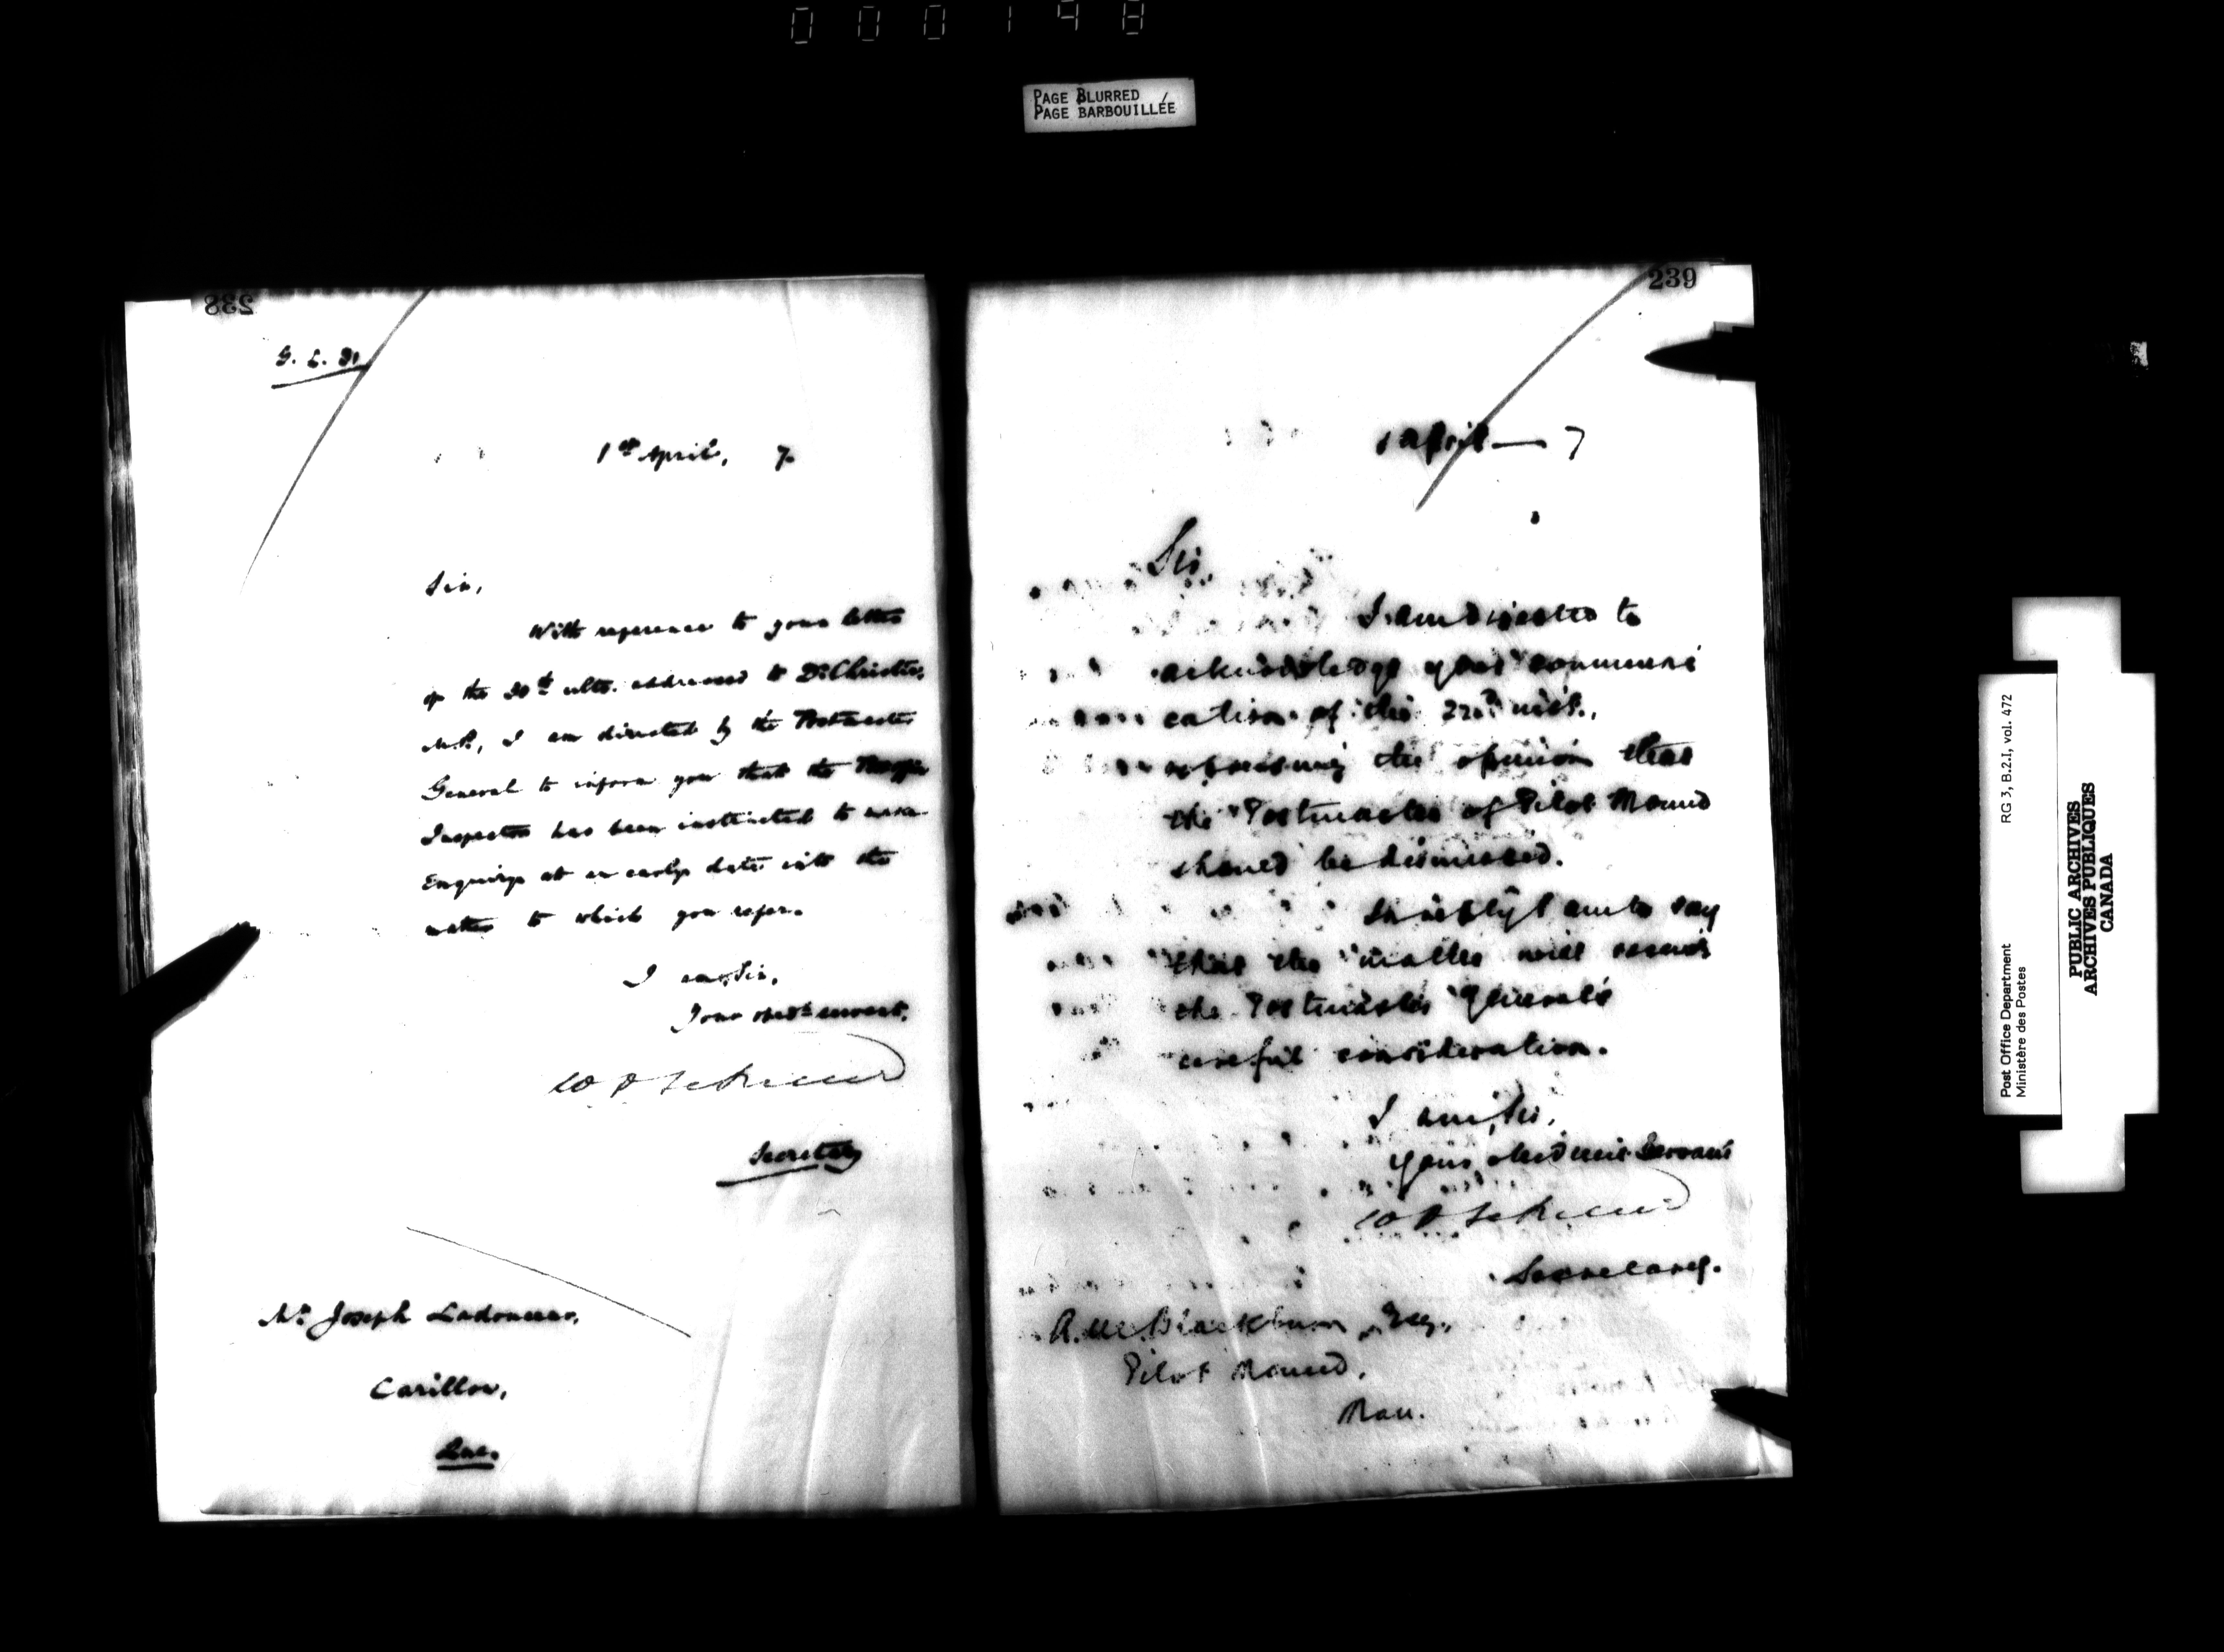 000148
PAGE BLURRED
PAGE BARBOUILLÉE
238
G. L. D.
1st April, 7.
Sir,
With reference to your letter
of the 20th ulto. addressed to Dr. Christie,
M.P., I am directed by the Postmaster
General to inform you that the
Inspector has been instructed to make
Enquiry at an early date into the
matter to which you refer.
I am, Sir,
Your obedt servant,
Secretary
Mr. Joseph Ladouceur,
Carillon,
Que.
239
1 April — 7
Sir,
I am directed to
acknowledge your communi
cation of the 22nd ult.,
expressing the opinion that
the Postmaster of Pilot Mound
should be dismissed.
In reply I am to say
that the matter will receive
the Postmaster General's
careful consideration.
I am, Sir,
Your obedient Servant
Secretary.
A. Mc. Blackburn, Esq.,
Pilot Mound,
Man.
Post Office Department
Ministère des Postes
RG 3, B.2.I, vol. 472
PUBLIC ARCHIVES
ARCHIVES PUBLIQUES
CANADA